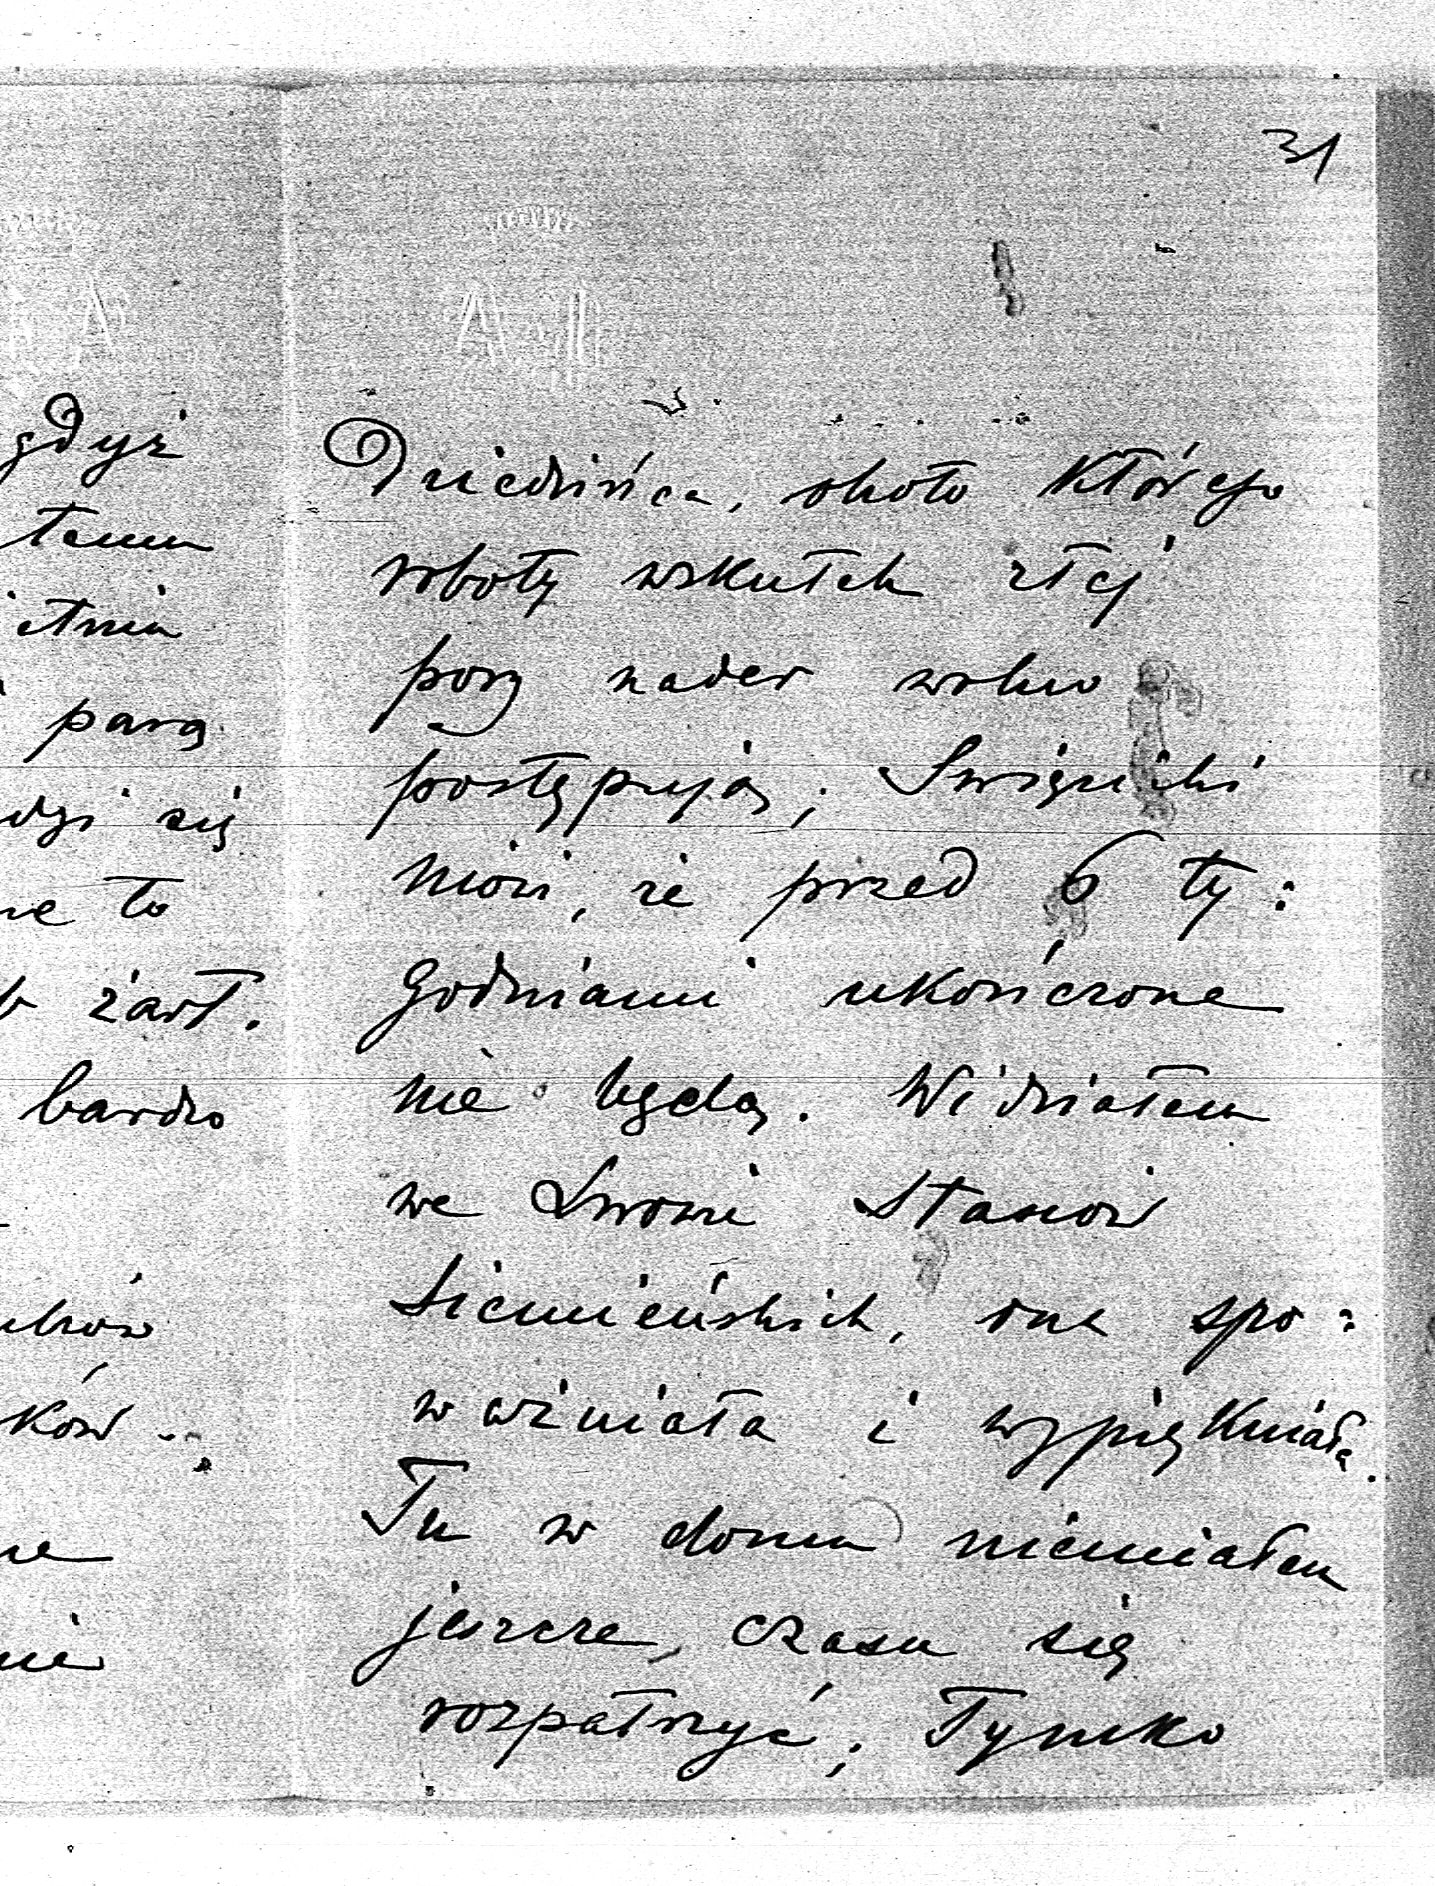 31
gdyż
temu
parą
się
to
żart.
bardzo
ków
Dziedzińca, około którego
roboty wskutek złej
pory nader wolno
postępują; Swięzicki
mówi, że przed 6 ty:
godniami ukończone
nie będą. Widziałem
we Lwowie Stasiów
Siemieńskich, ona spo:
ważniała i wypiękniała.
Tu w domu niemiałem
jeszcze, czasu się
rozpatrzyć; Tymko